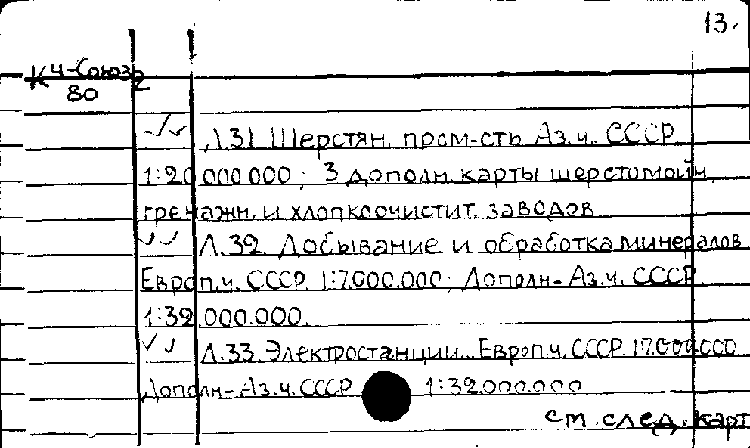 13.
К 4-Союз 2
80
Л.31 Шерстян. пром-сть Аз.ч. СССР
1:20.000.000; 3 дополн. карты шерстомойн.
гренажн. и хлопкоочистит. заводов
Л.32 Добывание и обработка минералов
Европ.ч. СССР 1:7.000.000; Дополн-Аз.ч. СССР
1:32.000.000.
Л.33 Электростанции. Европ.ч. СССР 1:7.000.000
Дополн-Аз.ч. СССР 1:32.000.000
см. след. карт